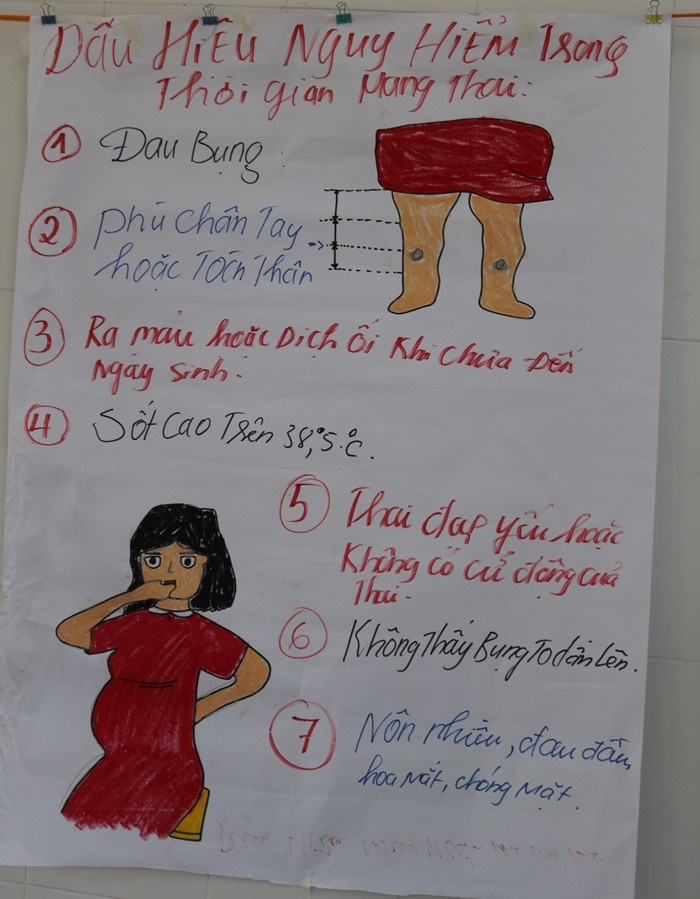 Dấu Hiệu Nguy Hiểm Trong
Thời gian Mang Thai:
1 Đau Bụng
2 Phù Chân Tay
hoặc Toàn Thân
3 Ra máu hoặc Dịch Ối Khi chưa Đến
Ngày Sinh.
4 Sốt Cao Trên 38,5°C.
5 Thai đạp yếu hoặc
Không có cử động của
Thai.
6 Không Thấy Bụng To dần Lên.
7 Nôn nhiều, đau đầu,
hoa mắt, chóng mặt.